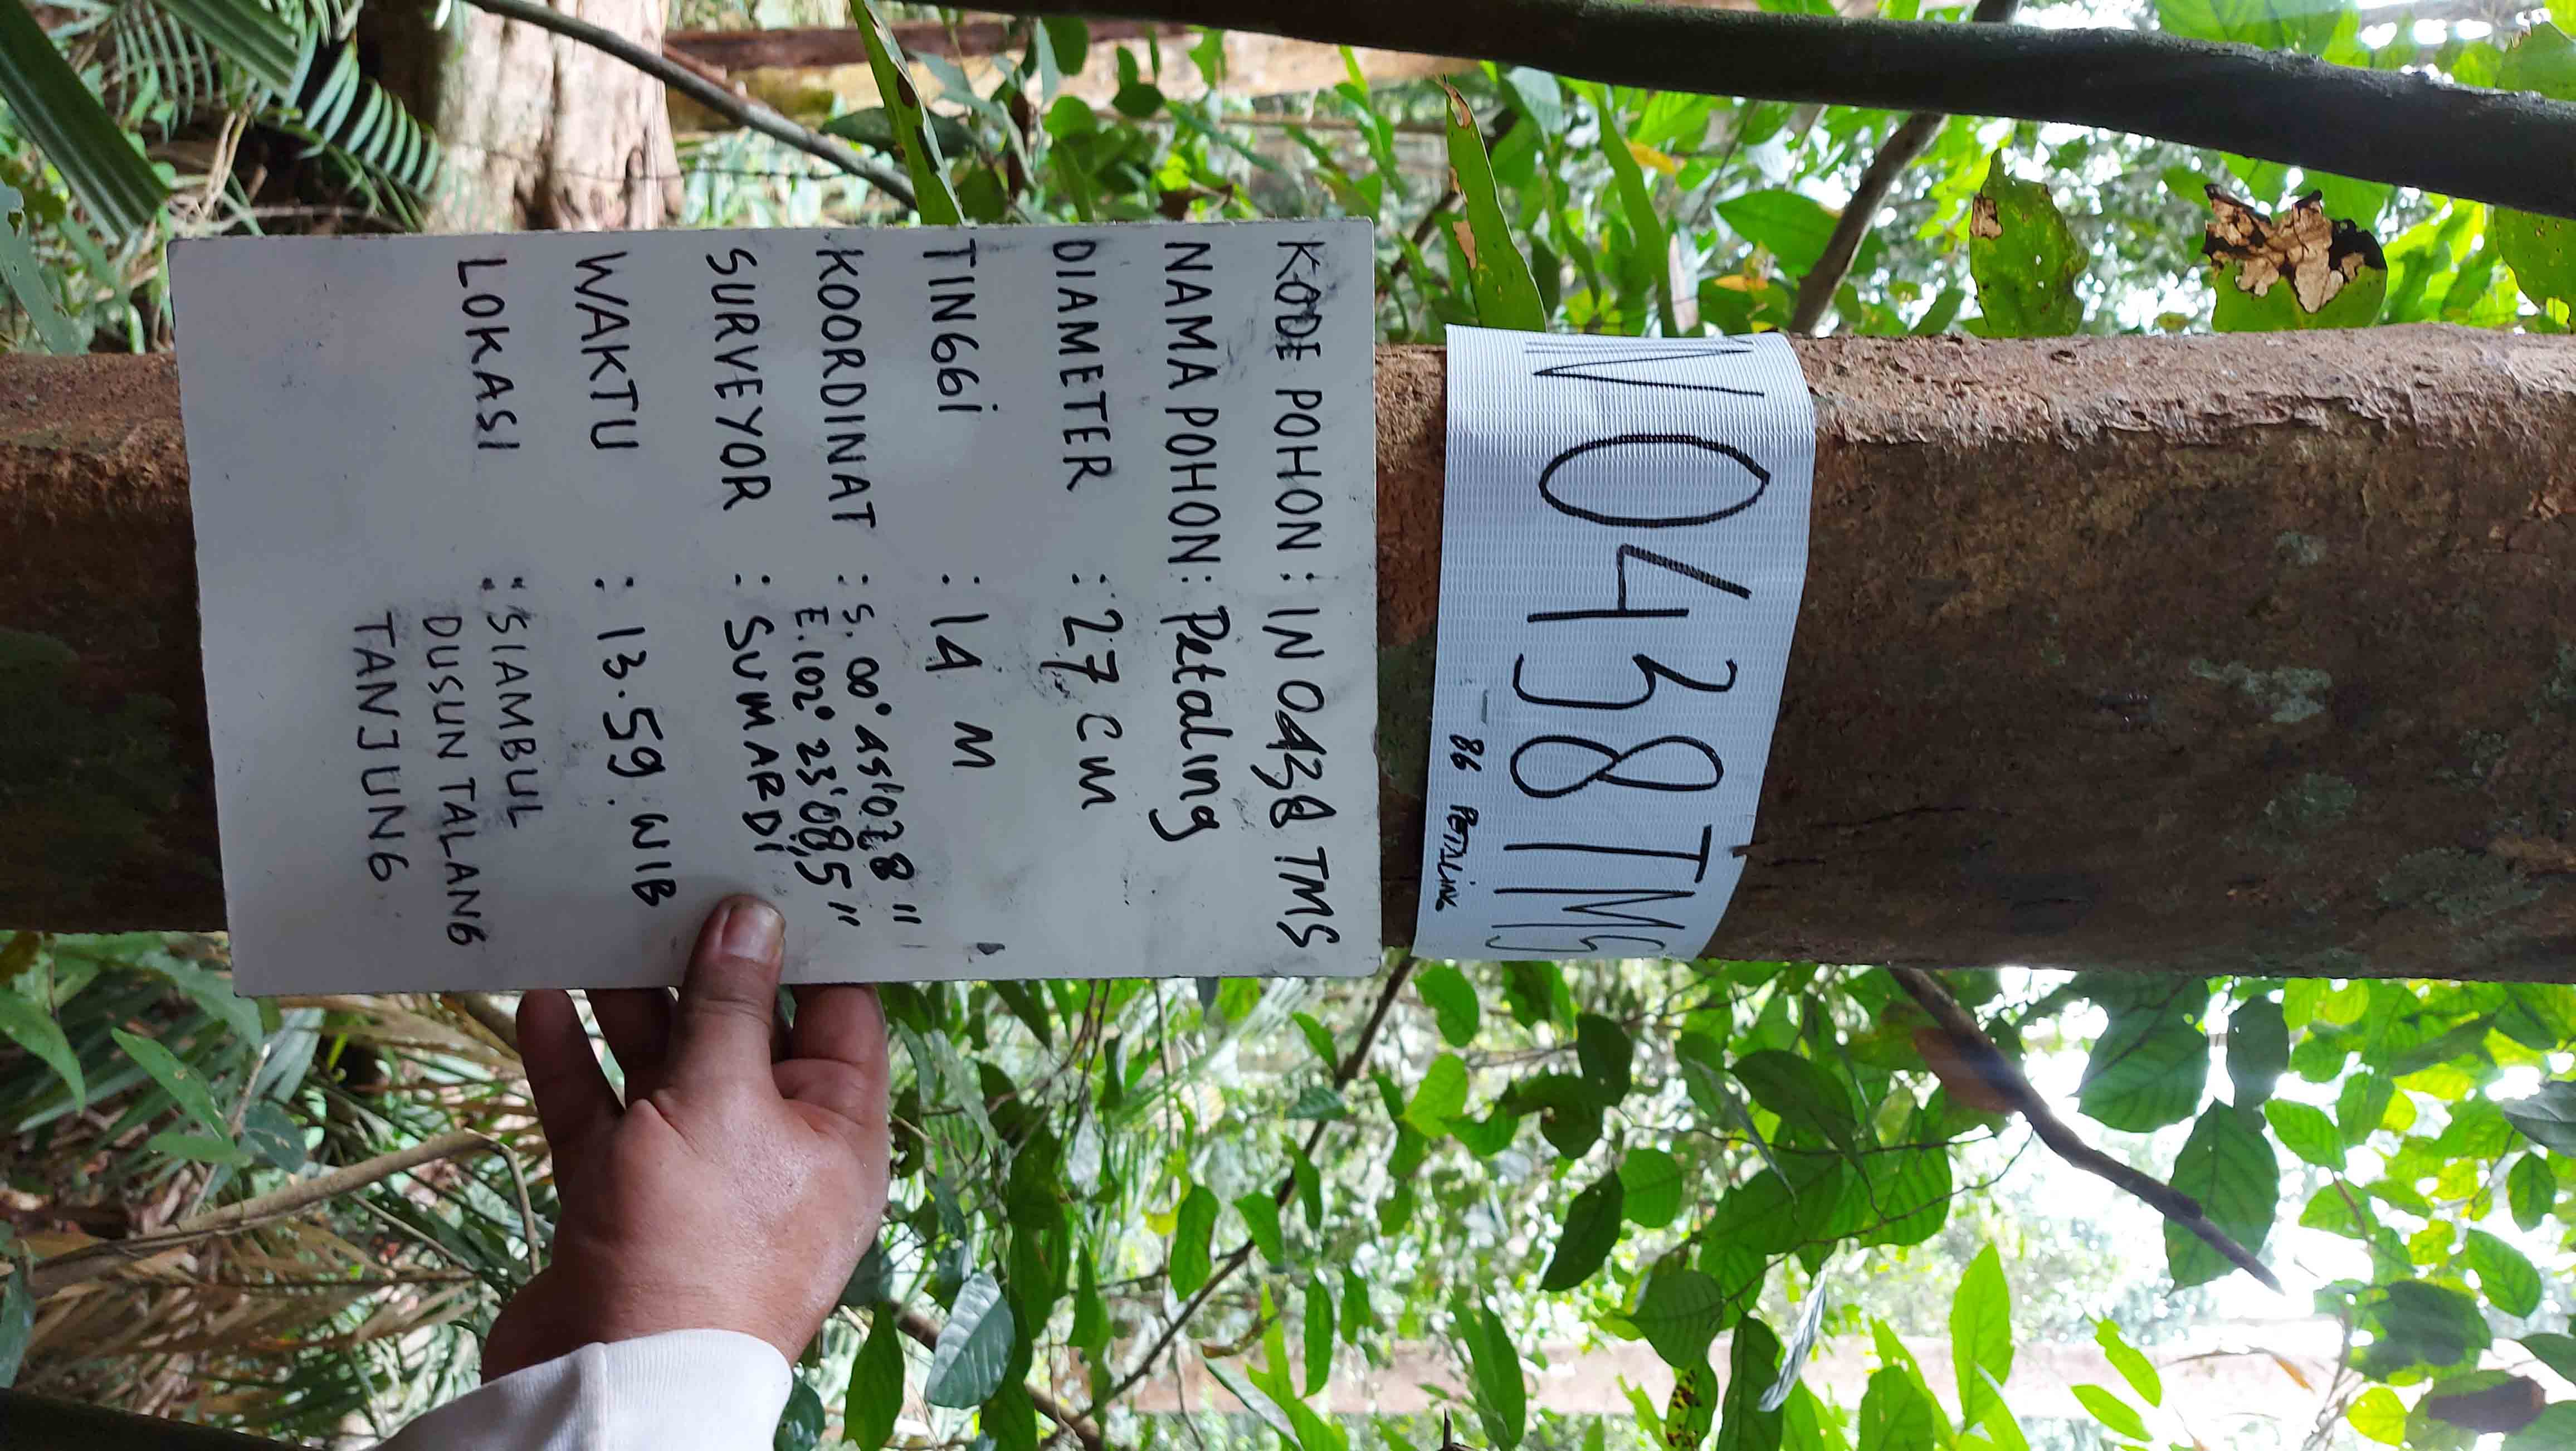 IN 0438 TMS
86 PETALING
KODE POHON : IN 0438 TMS
NAMA POHON : Petaling
DIAMETER : 27 cm
TINGGi : 14 M
KOORDINAT : S. 00° 45' 07,8 "
E. 102° 23' 08,5 "
SURVEYOR : SUMARDi
WAKTU : 13.59 WIB
LOKASI : SIAMBUL
DUSUN TALANG
TANJUNG